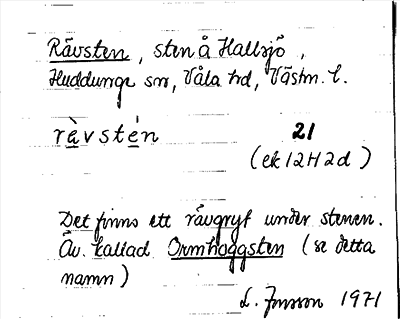 Rävsten, sten å Hallsjö,
Huddunge sn, Våla hd, Västm. l.
rὰvstén 21
(ek 12H2d)
Det finns ett rävgryt under stenen.
Äv. kallad Ormhoggsten (se detta
namn)
L. Jonsson 1971